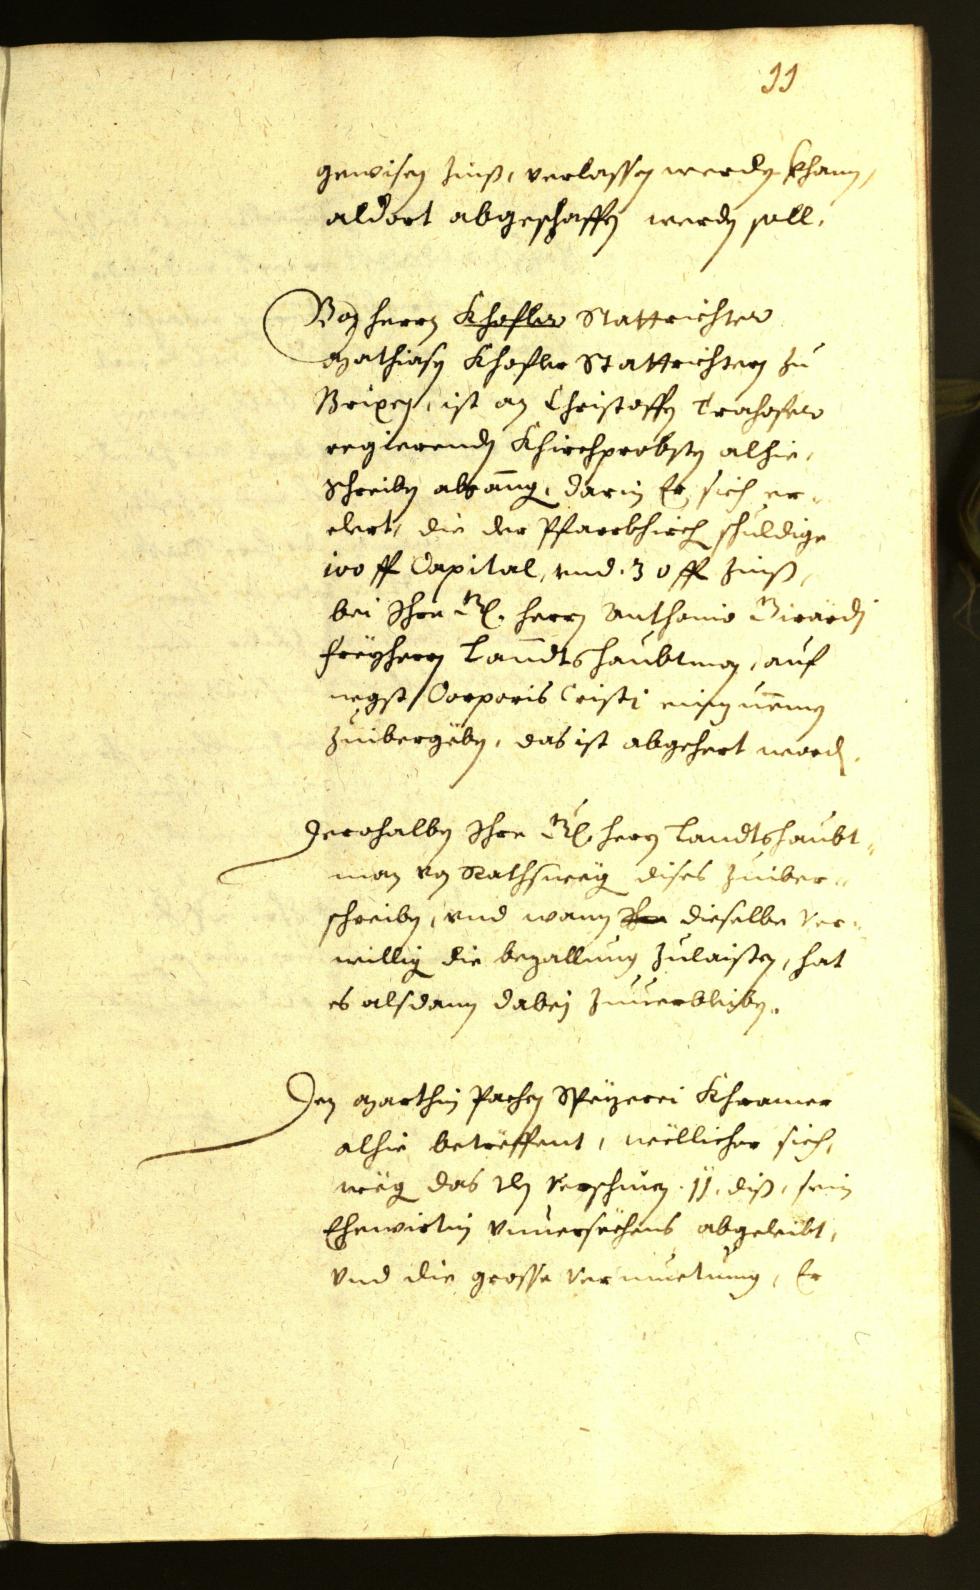 11
gewisen Zinß, verlassen werden khann,
aldort abgeschafft werden soll.
Von herrn Khofler Stattrichter
Mathiasen Khofler Stattrichtern zu
Brixen, ist an Christoffen Trahofer
regierenden Khirchprobsten alhie,
Schreiben abgangen, darin Er sich er-
clert, die der Pfarrkhirch schuldige
100 ff Capital, und 30 ff Zinß,
bei Ihre herrn Anthonio Girardi
Freyherrn Landtshaubtman, auf
negst Corporis Cristi einzunemen
zuibergeben, das ist abgehert worden.
Derohalben Ihre herrn Landtshaubt-
man von Rathsweg dises zuiber-
schreiben, und wann Ihr dieselbe ver-
willig die bezallung zulaisten, hat
es alsdann dabej zuuerbleiben.
Den Marthin Pachen Speyzerei Khramer
alhie betreffent, wellicher sich,
weg das den verschinen 11. diß, sein
Ehewirtin unuersechens abgeleibt,
und die grosse vermuetung, Er